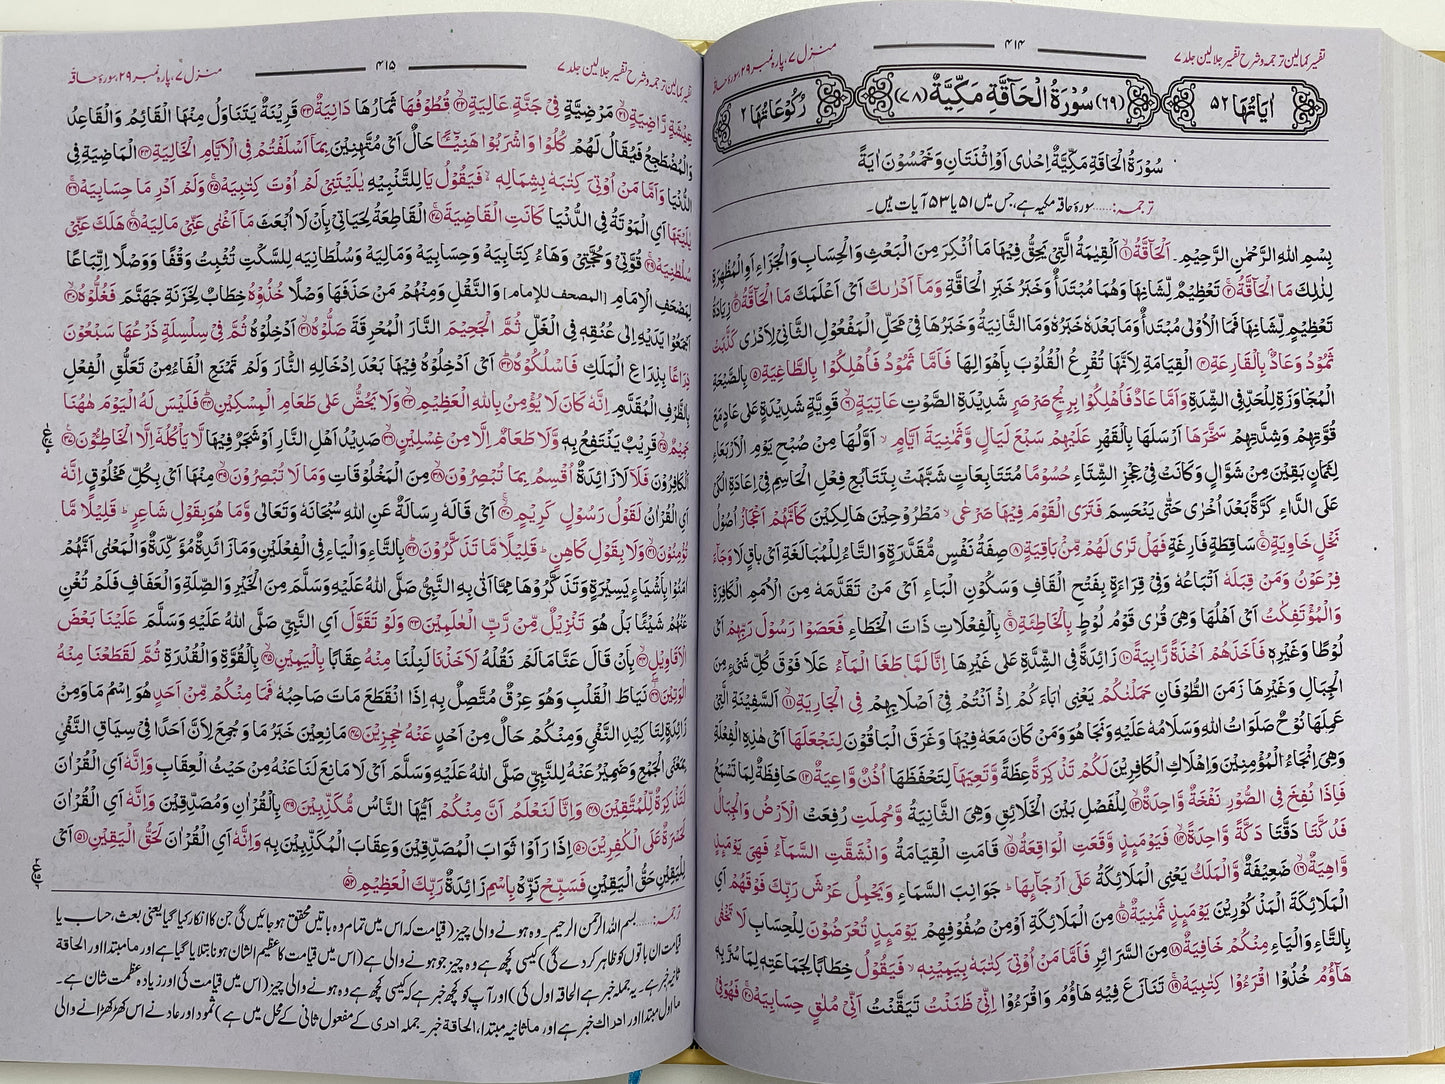 تفسیر کمالین ترجمہ و شرح تفسیر جلالین جلد ۷
۴۱۴
منزل ۷، پارہ نمبر ۲۹، سورۂ حاقہ
اٰيَاتُهَا ٥٢
(٦٩) سُوْرَةُ الْحَآقَّةِ مَكِّيَّةٌ (٧٨)
رُكُوْعَاتُهَا ٢
سُوْرَةُ الْحَاقَةِ مَكِّيَّةٌ اِحْدٰى اَوْ اِثْنَتَانِ وَخَمْسُوْنَ اٰيَةً
ترجمہ:..... سورۂ حاقہ مکیہ ہے، جس میں ۵۱ یا ۵۳ آیات ہیں۔
بِسْمِ اللهِ الرَّحْمٰنِ الرَّحِيْمِ۔ اَلْحَآقَّةُ ۝۱ اَلْقِيٰمَةُ الَّتِيْ يَحِقُّ فِيْهَا مَا اُنْكِرَ مِنَ الْبَعْثِ وَالْحِسَابِ وَالْجَزَاءِ اَوِ الْمُظْهِرَةِ
لِذٰلِكَ مَا الْحَآقَّةُ ۝۲ تَعْظِيْمٌ لِّشَانِهَا وَهُمَا مُبْتَدَأٌ وَخَبَرٌ خَبَرُ الْحَاقَّةِ وَمَآ اَدْرٰىكَ اَيْ اَعْلَمَكَ مَا الْحَآقَّةُ ۝۳ زِيَادَةُ
تَعْظِيْمٍ لِّشَانِهَا فَمَا الْاُوْلٰى مُبْتَدَأٌ وَمَا بَعْدَهٗ خَبَرُهٗ وَمَا الثَّانِيَةُ وَخَبَرُهَا فِيْ مَحَلِّ الْمَفْعُوْلِ الثَّانِيْ لِاَدْرٰى كَذَّبَتْ
ثَمُوْدُ وَعَادٌ بِالْقَارِعَةِ ۝۴ الْقِيَامَةِ لِاَنَّهَا تُقْرِعُ الْقُلُوْبَ بِاَهْوَالِهَا فَاَمَّا ثَمُوْدُ فَاُهْلِكُوْا بِالطَّاغِيَةِ ۝۵ بِالصَّيْحَةِ
الْمُجَاوَزَةِ لِلْحَدِّ فِى الشِّدَّةِ وَاَمَّا عَادٌ فَاُهْلِكُوْا بِرِيْحٍ صَرْصَرٍ شَدِيْدَةِ الصَّوْتِ عَاتِيَةٍ ۝۶ قَوِيَّةٍ شَدِيْدَةٍ عَلٰى عَادٍ مَعَ
قُوَّتِهِمْ وَشِدَّتِهِمْ سَخَّرَهَا اَرْسَلَهَا بِالْقَهْرِ عَلَيْهِمْ سَبْعَ لَيَالٍ وَّثَمٰنِيَةَ اَيَّامٍ اَوَّلُهَا مِنْ صُبْحِ يَوْمِ الْاَرْبَعَاءِ
لِثَمَانٍ بَقِيْنَ مِنْ شَوَّالٍ وَكَانَتْ فِيْ عِجْزِ الشِّتَاءِ حُسُوْمًا مُتَتَابِعَاتٍ شُبِّهَتْ بِتَتَابُعِ فِعْلِ الْحَاسِمِ فِيْ اِعَادَةِ الْكَيِّ
عَلَى الدَّاءِ كَرَّةً بَعْدَ اُخْرٰى حَتّٰى يَنْحَسِمَ فَتَرَى الْقَوْمَ فِيْهَا صَرْعٰى مَطْرُوْحِيْنَ هَالِكِيْنَ كَاَنَّهُمْ اَعْجَازُ اُصُوْلُ
نَخْلٍ خَاوِيَةٍ ۝۷ سَاقِطَةٍ فَارِغَةٍ فَهَلْ تَرٰى لَهُمْ مِّنْ بَاقِيَةٍ ۝۸ صِفَةُ نَفْسٍ مُقَدَّرَةٍ وَالتَّاءُ لِلْمُبَالَغَةِ اَيْ بَاقٍ لَا وَجَآءَ
فِرْعَوْنُ وَمَنْ قِبَلَهٗ اَتْبَاعُهٗ وَفِيْ قِرَاءَةٍ بِفَتْحِ الْقَافِ وَسَكُوْنِ الْبَاءِ اَيْ مَنْ تَقَدَّمَهٗ مِنَ الْاُمَمِ الْكَافِرَةِ
وَالْمُؤْتَفِكٰتُ اَيْ اَهْلُهَا وَهِيَ قُرٰى قَوْمِ لُوْطٍ بِالْخَاطِئَةِ ۝۹ بِالْفِعْلَاتِ ذَاتِ الْخَطَاءِ فَعَصَوْا رَسُوْلَ رَبِّهِمْ اَيْ
لُوْطًا وَغَيْرَهٖ فَاَخَذَهُمْ اَخْذَةً رَّابِيَةً ۝۱۰ زَائِدَةً فِى الشِّدَّةِ عَلٰى غَيْرِهَا اِنَّا لَمَّا طَغَا الْمَآءُ عَلَا فَوْقَ كُلِّ شَيْءٍ مِنَ
الْجِبَالِ وَغَيْرِهَا زَمَنَ الطُّوْفَانِ حَمَلْنٰكُمْ يَعْنِيْ اٰبَاءَكُمْ اِذْ اَنْتُمْ فِيْ اَصْلَابِهِمْ فِى الْجَارِيَةِ ۝۱۱ اَلسَّفِيْنَةِ الَّتِيْ
عَمِلَهَا نُوْحٌ صَلَوَاتُ اللهِ وَسَلَامُهٗ عَلَيْهِ وَنَجَا هُوَ وَمَنْ كَانَ مَعَهٗ فِيْهَا وَغَرَقَ الْبَاقُوْنَ لِنَجْعَلَهَا اَيْ هٰذِهِ الْفِعْلَةَ
وَهِيَ اِنْجَاءُ الْمُؤْمِنِيْنَ وَاِهْلَاكُ الْكَافِرِيْنَ لَكُمْ تَذْكِرَةً عِظَةً وَّتَعِيَهَآ لِتَحْفَظَهَا اُذُنٌ وَّاعِيَةٌ ۝۱۲ حَافِظَةٌ لِمَا تَسْمَعُ
فَاِذَا نُفِخَ فِى الصُّوْرِ نَفْخَةٌ وَّاحِدَةٌ ۝۱۳ لِلْفَصْلِ بَيْنَ الْخَلَائِقِ وَهِيَ الثَّانِيَةُ وَّحُمِلَتِ رُفِعَتْ الْاَرْضُ وَالْجِبَالُ
فَدُكَّتَا دَقَّتَا دَكَّةً وَّاحِدَةً ۝۱۴ فَيَوْمَىِٕذٍ وَّقَعَتِ الْوَاقِعَةُ ۝۱۵ قَامَتِ الْقِيَامَةُ وَانْشَقَّتِ السَّمَآءُ فَهِىَ يَوْمَىِٕذٍ
وَّاهِيَةٌ ۝۱۶ ضَعِيْفَةٌ وَّالْمَلَكُ يَعْنِى الْمَلَائِكَةَ عَلٰٓى اَرْجَآىِٕهَا جَوَانِبِ السَّمَاءِ وَيَحْمِلُ عَرْشَ رَبِّكَ فَوْقَهُمْ اَيْ
الْمَلَائِكَةِ الْمَذْكُوْرِيْنَ يَوْمَىِٕذٍ ثَمٰنِيَةٌ ۝۱۷ مِنَ الْمَلَائِكَةِ اَوْ مِنْ صُفُوْفِهِمْ يَوْمَىِٕذٍ تُعْرَضُوْنَ لِلْحِسَابِ لَا تَخْفٰى
بِالتَّاءِ وَالْيَاءِ مِنْكُمْ خَافِيَةٌ ۝۱۸ مِنَ السَّرَائِرِ فَاَمَّا مَنْ اُوْتِىَ كِتٰبَهٗ بِيَمِيْنِهٖ فَيَقُوْلُ خِطَابًا لِجَمَاعَتِهٖ لِمَا سُرَّ بِهٖ
هَآؤُمُ خُذُوْا اقْرَءُوْا كِتٰبِيَهْ ۝۱۹ تَنَازَعَ فِيْهِ هَاؤُمُ وَاقْرَءُوْا اِنِّىْ ظَنَنْتُ تَيَقَّنْتُ اَنِّىْ مُلٰقٍ حِسَابِيَهْ ۝۲۰ فَهُوَ فِىْ
تفسیر کمالین ترجمہ و شرح تفسیر جلالین جلد ۷
۴۱۵
منزل ۷، پارہ نمبر ۲۹، سورۂ حاقہ
عِيْشَةٍ رَّاضِيَةٍ ۝۲۱ مَرْضِيَّةٍ فِىْ جَنَّةٍ عَالِيَةٍ ۝۲۲ قُطُوْفُهَا ثِمَارُهَا دَانِيَةٌ ۝۲۳ قَرِيْبَةٌ يَتَنَاوَلُ مِنْهَا الْقَائِمُ وَالْقَاعِدُ
وَالْمُضْطَجِعُ فَيُقَالُ لَهُمْ كُلُوْا وَاشْرَبُوْا هَنِيْٓـًٔا حَالٌ اَيْ مُتَهَنِّئِيْنَ بِمَآ اَسْلَفْتُمْ فِى الْاَيَّامِ الْخَالِيَةِ ۝۲۴ الْمَاضِيَةِ فِى
الدُّنْيَا وَاَمَّا مَنْ اُوْتِىَ كِتٰبَهٗ بِشِمَالِهٖ فَيَقُوْلُ يَا لِلتَّنْبِيْهِ يٰلَيْتَنِىْ لَمْ اُوْتَ كِتٰبِيَهْ ۝۲۵ وَلَمْ اَدْرِ مَا حِسَابِيَهْ ۝۲۶
يٰلَيْتَهَا اَيِ الْمَوْتَةُ فِى الدُّنْيَا كَانَتِ الْقَاضِيَةَ ۝۲۷ الْقَاطِعَةُ لِحَيَاتِيْ بِاَنْ لَّا اُبْعَثَ مَآ اَغْنٰى عَنِّىْ مَالِيَهْ ۝۲۸ هَلَكَ عَنِّىْ
سُلْطٰنِيَهْ ۝۲۹ قُوَّتِيْ وَحُجَّتِيْ وَهَاءُ كِتَابِيَهْ وَحِسَابِيَهْ وَمَالِيَهْ وَسُلْطَانِيَهْ لِلسَّكْتِ تُثْبِتُ وَقْفًا وَوَصْلًا اِتِّبَاعًا
لِمَصْحَفِ الْاِمَامِ [المصحف للإمام] وَالنَّقْلِ وَمِنْهُمْ مَنْ حَذَفَهَا وَصْلًا خُذُوْهُ خِطَابٌ لِخَزَنَةِ جَهَنَّمَ فَغُلُّوْهُ ۝۳۰
اِجْمَعُوْا يَدَيْهِ اِلٰى عُنُقِهٖ فِى الْغَلِّ ثُمَّ الْجَحِيْمَ النَّارَ الْمُحْرِقَةَ صَلُّوْهُ ۝۳۱ اَدْخِلُوْهُ ثُمَّ فِىْ سِلْسِلَةٍ ذَرْعُهَا سَبْعُوْنَ
ذِرَاعًا بِذِرَاعِ الْمَلَكِ فَاسْلُكُوْهُ ۝۳۲ اَيْ اَدْخِلُوْهُ فِيْهَا بَعْدَ اِدْخَالِهِ النَّارَ وَلَمْ تَمْنَعِ الْفَاءُ مِنْ تَعَلُّقِ الْفِعْلِ
بِالظَّرْفِ الْمُقَدَّمِ اِنَّهٗ كَانَ لَا يُؤْمِنُ بِاللهِ الْعَظِيْمِ ۝۳۳ وَلَا يَحُضُّ عَلٰى طَعَامِ الْمِسْكِيْنِ ۝۳۴ فَلَيْسَ لَهُ الْيَوْمَ هٰهُنَا
حَمِيْمٌ ۝۳۵ قَرِيْبٌ يَنْتَفِعُ بِهٖ وَّلَا طَعَامٌ اِلَّا مِنْ غِسْلِيْنٍ ۝۳۶ صَدِيْدُ اَهْلِ النَّارِ اَوْ شَجَرٌ فِيْهَا لَّا يَاْكُلُهٗٓ اِلَّا الْخَاطِـُٔوْنَ ۝۳۷
اَلْكَافِرُوْنَ فَلَآ لَا زَائِدَةٌ اُقْسِمُ بِمَا تُبْصِرُوْنَ ۝۳۸ مِنَ الْمَخْلُوْقَاتِ وَمَا لَا تُبْصِرُوْنَ ۝۳۹ مِنْهَا اَيْ بِكُلِّ مَخْلُوْقٍ اِنَّهٗ
اَيِ الْقُرْاٰنُ لَقَوْلُ رَسُوْلٍ كَرِيْمٍ ۝۴۰ اَيْ قَالَهٗ رِسَالَةً عَنِ اللهِ سُبْحَانَهٗ وَتَعَالٰى وَّمَا هُوَ بِقَوْلِ شَاعِرٍ قَلِيْلًا مَّا
تُؤْمِنُوْنَ ۝۴۱ وَلَا بِقَوْلِ كَاهِنٍ قَلِيْلًا مَّا تَذَكَّرُوْنَ ۝۴۲ بِالتَّاءِ وَالْيَاءِ فِى الْفِعْلَيْنِ وَمَا زَائِدَةٌ مُؤَكِّدَةٌ وَالْمَعْنٰى اَنَّهُمْ
اٰمَنُوْا بِاَشْيَاءَ يَسِيْرَةٍ وَتَذَكَّرُوْهَا مِمَّا اَتٰى بِهِ النَّبِيُّ صَلَّى اللهُ عَلَيْهِ وَسَلَّمَ مِنَ الْخَيْرِ وَالصِّلَةِ وَالْعَفَافِ فَلَمْ تُغْنِ
عَنْهُمْ شَيْئًا بَلْ هُوَ تَنْزِيْلٌ مِّنْ رَّبِّ الْعٰلَمِيْنَ ۝۴۳ وَلَوْ تَقَوَّلَ اَيِ النَّبِيُّ صَلَّى اللهُ عَلَيْهِ وَسَلَّمَ عَلَيْنَا بَعْضَ
الْاَقَاوِيْلِ ۝۴۴ بِاَنْ قَالَ عَنَّا مَا لَمْ نَقُلْهُ لَاَخَذْنَا لَنِلْنَا مِنْهُ عِقَابًا بِالْيَمِيْنِ ۝۴۵ بِالْقُوَّةِ وَالْقُدْرَةِ ثُمَّ لَقَطَعْنَا مِنْهُ
الْوَتِيْنَ ۝۴۶ نِيَاطَ الْقَلْبِ وَهُوَ عِرْقٌ مُتَّصِلٌ بِهٖ اِذَا انْقَطَعَ مَاتَ صَاحِبُهٗ فَمَا مِنْكُمْ مِّنْ اَحَدٍ هُوَ اِسْمُ مَا وَمِنْ
زَائِدَةٌ لِتَاكِيْدِ النَّفْيِ وَمِنْكُمْ حَالٌ مِنْ اَحَدٍ عَنْهُ حٰجِزِيْنَ ۝۴۷ مَانِعِيْنَ خَبَرُ مَا وَجُمِعَ لِاَنَّ اَحَدًا فِيْ سِيَاقِ النَّفْيِ
بِمَعْنَى الْجَمْعِ وَضَمِيْرُ عَنْهُ لِلنَّبِيِّ صَلَّى اللهُ عَلَيْهِ وَسَلَّمَ اَيْ لَا مَانِعَ لَنَا عَنْهُ مِنْ حَيْثُ الْعِقَابِ وَاِنَّهٗ اَيِ الْقُرْاٰنَ
لَتَذْكِرَةٌ لِّلْمُتَّقِيْنَ ۝۴۸ وَاِنَّا لَنَعْلَمُ اَنَّ مِنْكُمْ اَيُّهَا النَّاسُ مُّكَذِّبِيْنَ ۝۴۹ بِالْقُرْاٰنِ وَمُصَدِّقِيْنَ وَاِنَّهٗ اَيِ الْقُرْاٰنَ
لَحَسْرَةٌ عَلَى الْكٰفِرِيْنَ ۝۵۰ اِذَا رَاَوْا ثَوَابَ الْمُصَدِّقِيْنَ وَعِقَابَ الْمُكَذِّبِيْنَ بِهٖ وَاِنَّهٗ اَيِ الْقُرْاٰنَ لَحَقُّ الْيَقِيْنِ ۝۵۱ اَيْ
لِلْيَقِيْنِ حَقُّ الْيَقِيْنِ فَسَبِّحْ نَزِّهْ بِاسْمِ زَائِدَةٌ رَبِّكَ الْعَظِيْمِ ۝۵۲
ترجمہ:..... بسم اللہ الرحمٰن الرحیم۔ وہ ہونے والی چیز (قیامت کہ اس میں تمام وہ باتیں محقق ہو جائیں گی جن کا انکار کیا گیا یعنی بعث، حساب یا
قیامت ان باتوں کو ظاہر کر دے گی) کیسی کچھ ہے وہ چیز جو ہونے والی ہے (اس میں قیامت کا عظیم الشان ہونا بتلایا گیا ہے اور ما مبتدا اور الحاقۃ
ثانیہ خبر ہے۔ یہ جملہ خبر ہے الحاقہ اول کی) اور آپ کو کچھ خبر ہے کہ کیسی کچھ ہے وہ ہونے والی چیز (اس میں قیامت کی اور زیادہ عظمت شان ہے۔
ما اول مبتدا اور ادراک خبر ہے اور ما ثانیہ مبتدا، الحاقۃ خبر۔ جملہ ادری کے مفعول ثانی کے محل میں ہے) ثمود اور عاد نے اس کھڑکھڑانے والی